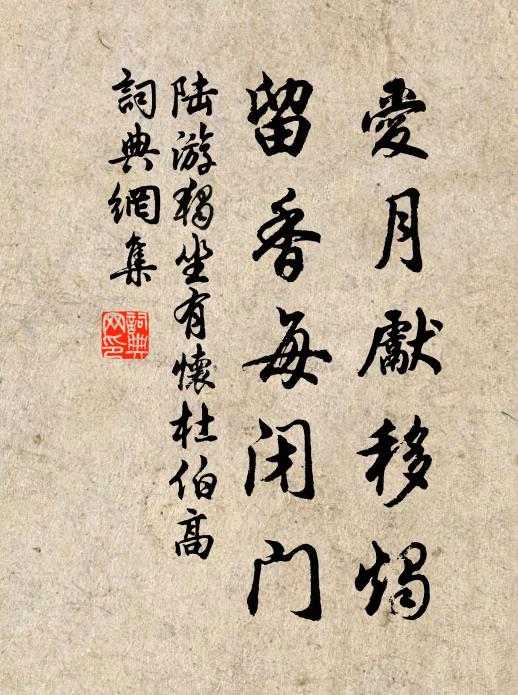 愛月獻移燭
留香每闭门
陆游獨坐有懷杜伯高
詞典網集
詞典網印